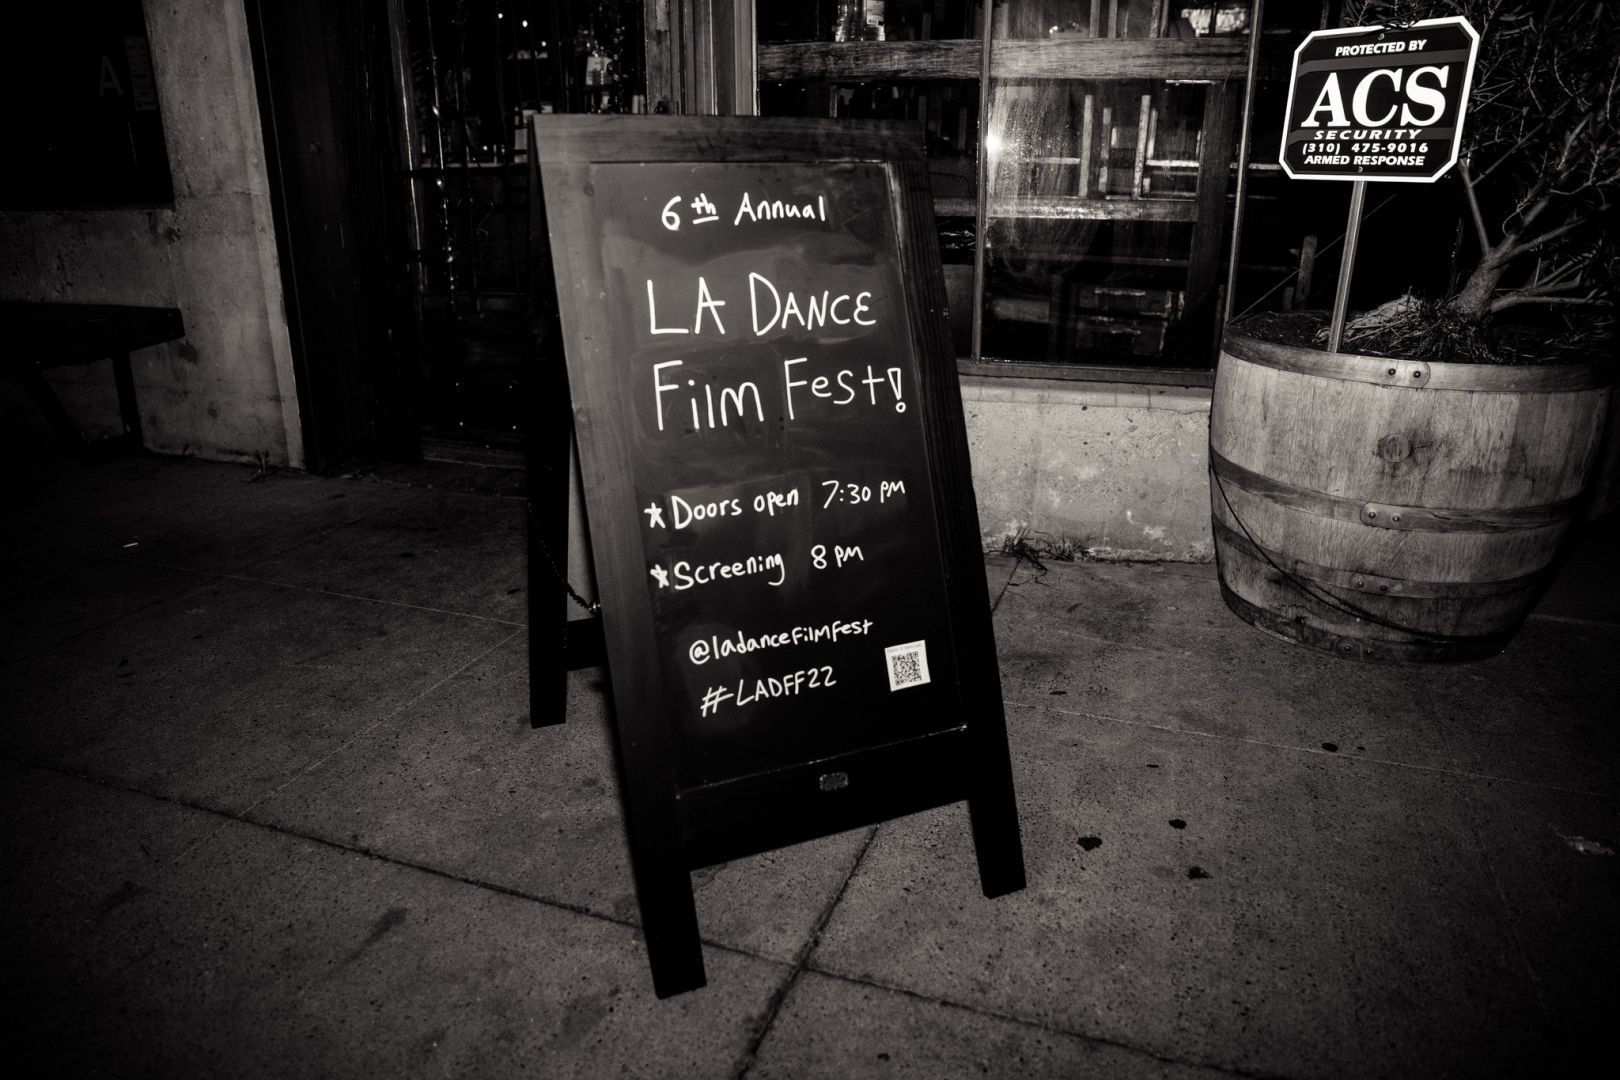 6th Annual
LA DANCE
Film Fest!
*Doors open 7:30 PM
*Screening 8 PM
@ladancefilmfest
#LADFF22
PROTECTED BY
ACS
SECURITY
(310) 475-9016
ARMED RESPONSE